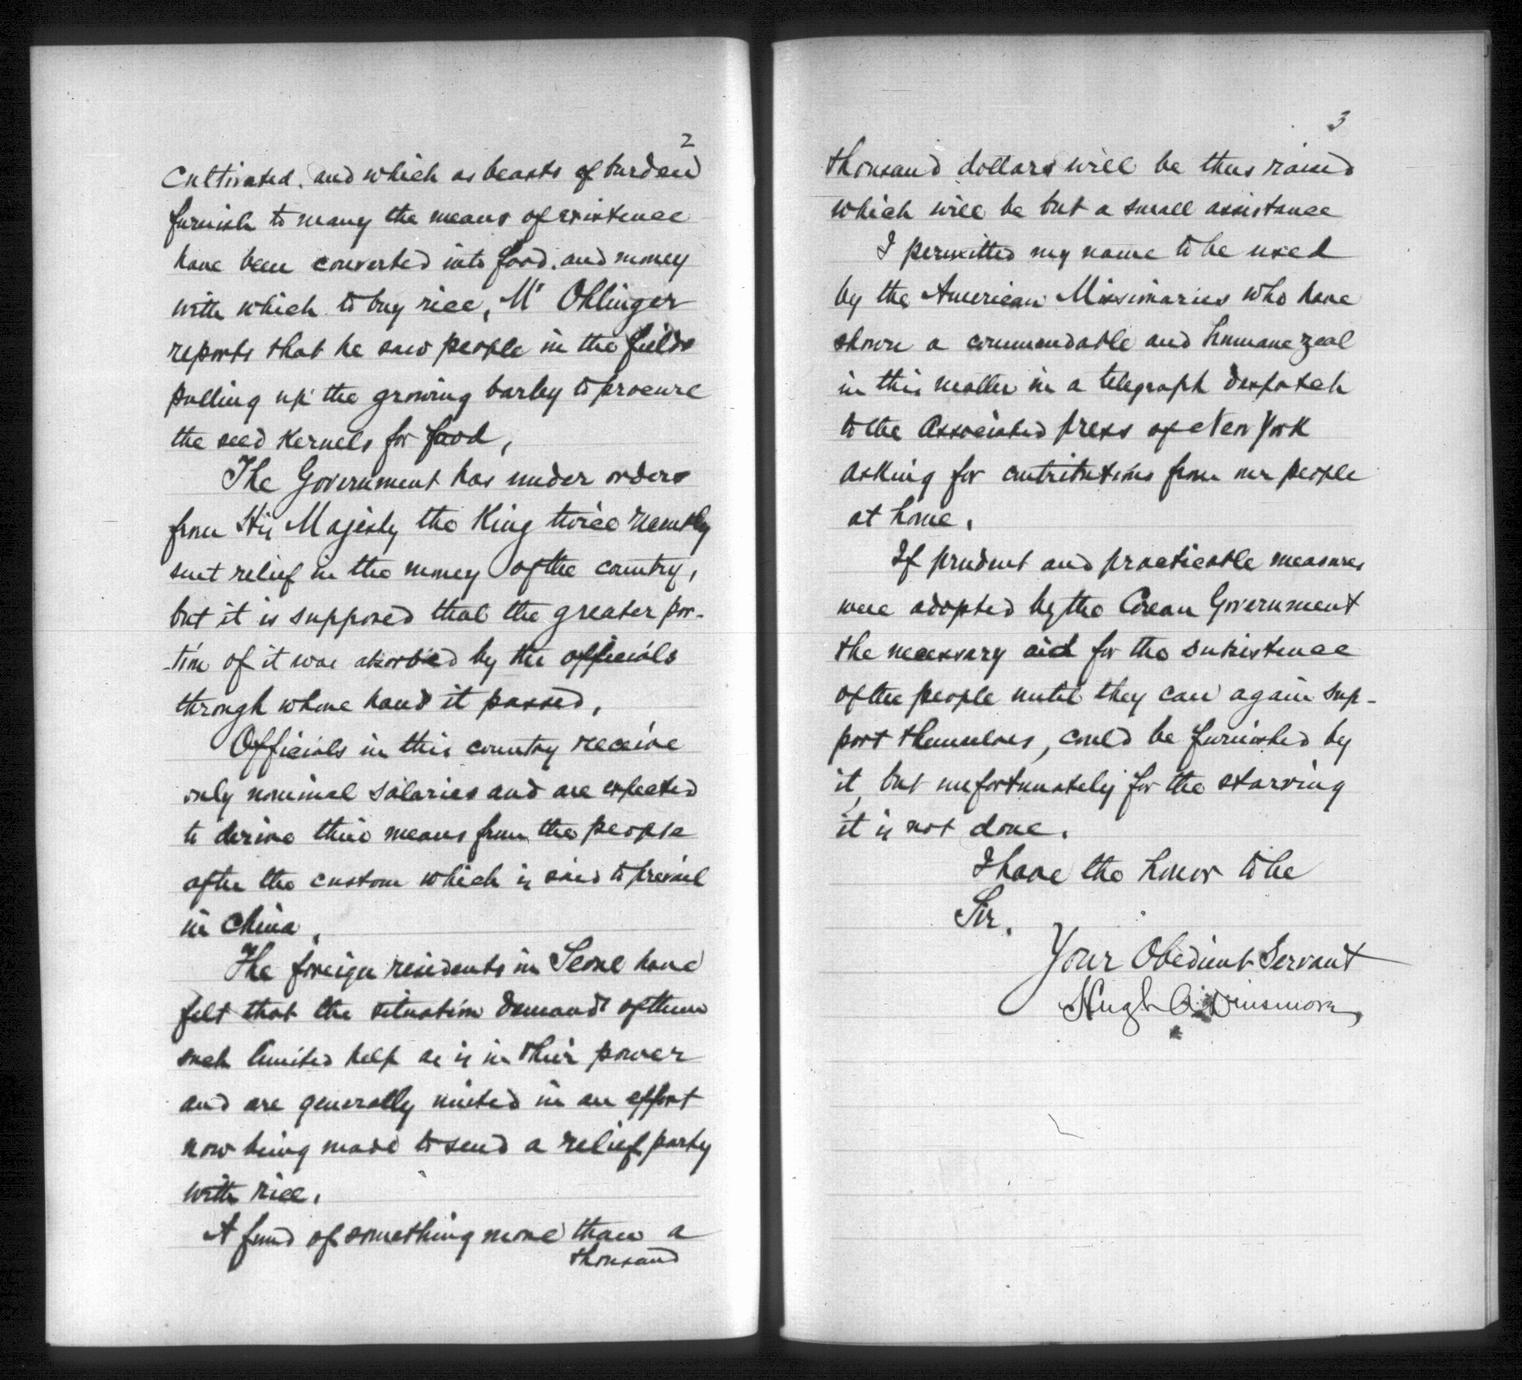 2
cultivated. and which as beasts of burden
furnish to many the means of existence
have been converted into food. and money
with which to buy rice, Mr Ohlinger
reports that he saw people in the fields
pulling up the growing barley to procure
the seed kernels for food,
The Government has under orders
from His Majesty the King twice recently
sent relief in the money of the country,
but it is supposed that the greater por-
tion of it was absorbed by the officials
through whose hand it passed,
Officials in this country receive
only nominal salaries and are expected
to derive their means from the people
after the custom which is said to prevail
in China,
The foreign residents in Seoul have
felt that the situation demands of them
such limited help as is in their power
and are generally united in an effort
now being made to send a relief party
with rice,
A fund of something more than a
thousand
3
thousand dollars will be thus raised
which will be but a small assistance
I permitted my name to be used
by the American Missionaries who have
shown a commendable and humane zeal
in this matter in a telegraph despatch
to the Associated press of New York
asking for contributions from our people
at home,
If prudent and practicable measures
were adopted by the Corean Government
the necessary aid for the subsistence
of the people until they can again sup-
port themselves, could be furnished by
it, but unfortunately for the starving
it is not done.
I have the honor to be
Sir.
Your Obedient Servant
Hugh A. Dinsmore,